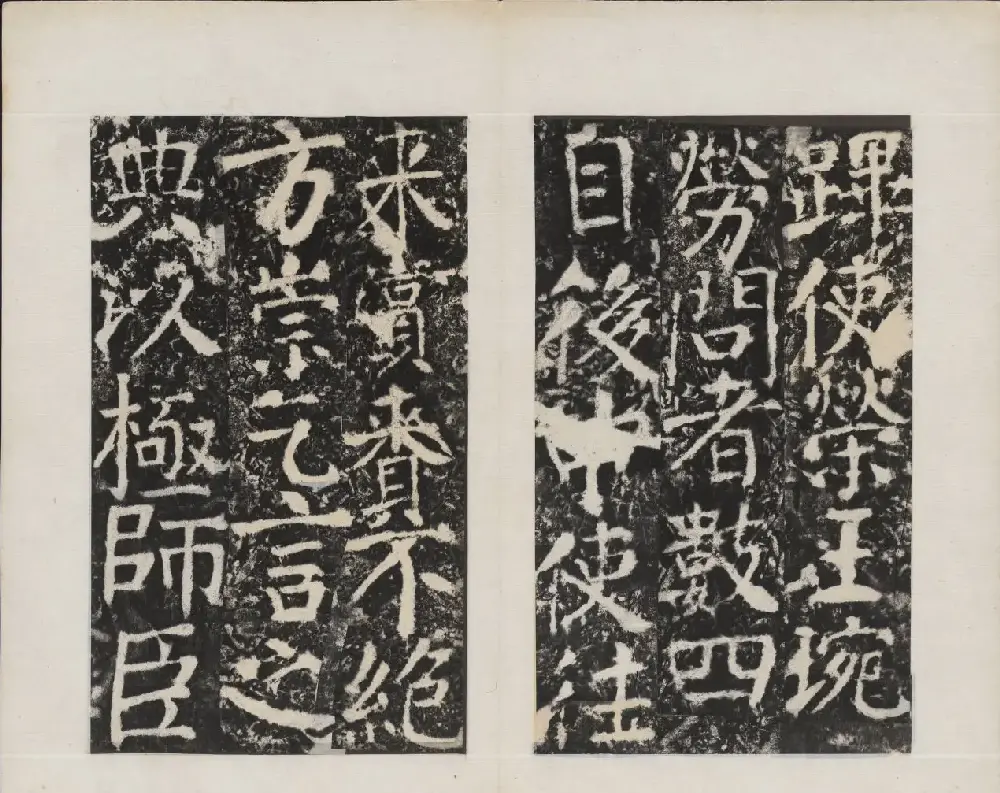 蹕使榮王琬
勞問者數四
自後中使往
來賞賚不絕
方崇乞言之
典以極師臣